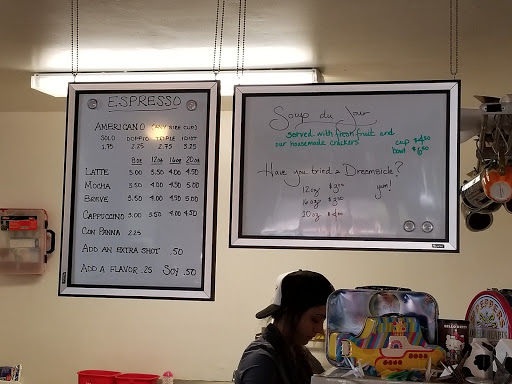 ESPRESSO
AMERICANO (ANY SIZE CUP)
SOLO DOPPIO TRIPLE IDIOT
1.75 2.25 2.75 3.25
8oz 12oz 16oz 20oz
LATTE 3.00 3.50 4.00 4.50
MOCHA 3.50 4.00 4.50 5.00
BREVE 3.50 4.00 4.50 5.00
CAPPUCCINO 3.00 3.50 4.00 4.50
CON PANNA 2.25
ADD AN EXTRA SHOT .50
ADD A FLAVOR .25 SOY .50
Soup du Jour
served with fresh fruit and
our housemade crackers
cup
bowl
Have you tried a Dreamsicle?
12oz
16oz
20oz
yum!
PEPPER'S
HELLO KITTY